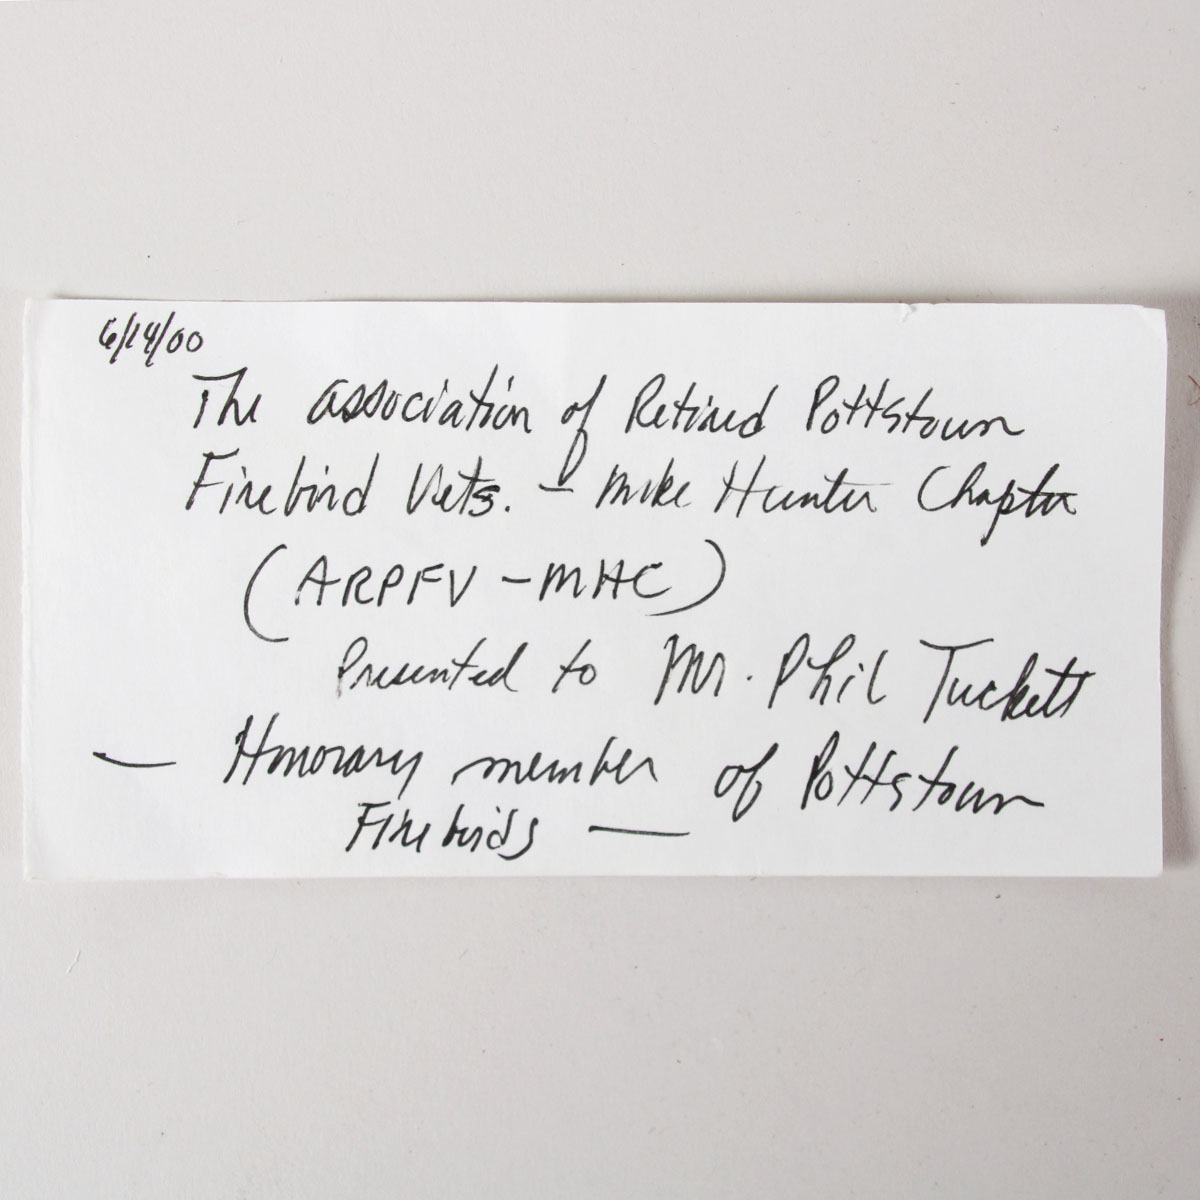 6/14/00
The association of Retired Pottstown
Firebird Vets. - Mike Hunter Chapter
(ARPFV - MHC)
Presented to Mr. Phil Tuckett
— Honorary member of Pottstown
Firebirds —